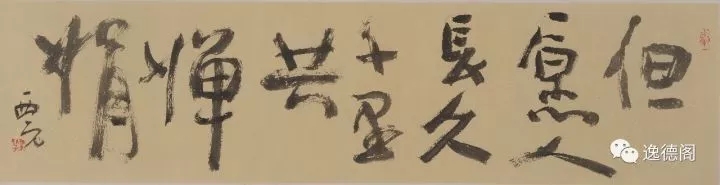 但
愿人
長久
千里
共
婵
娟
逸德阁